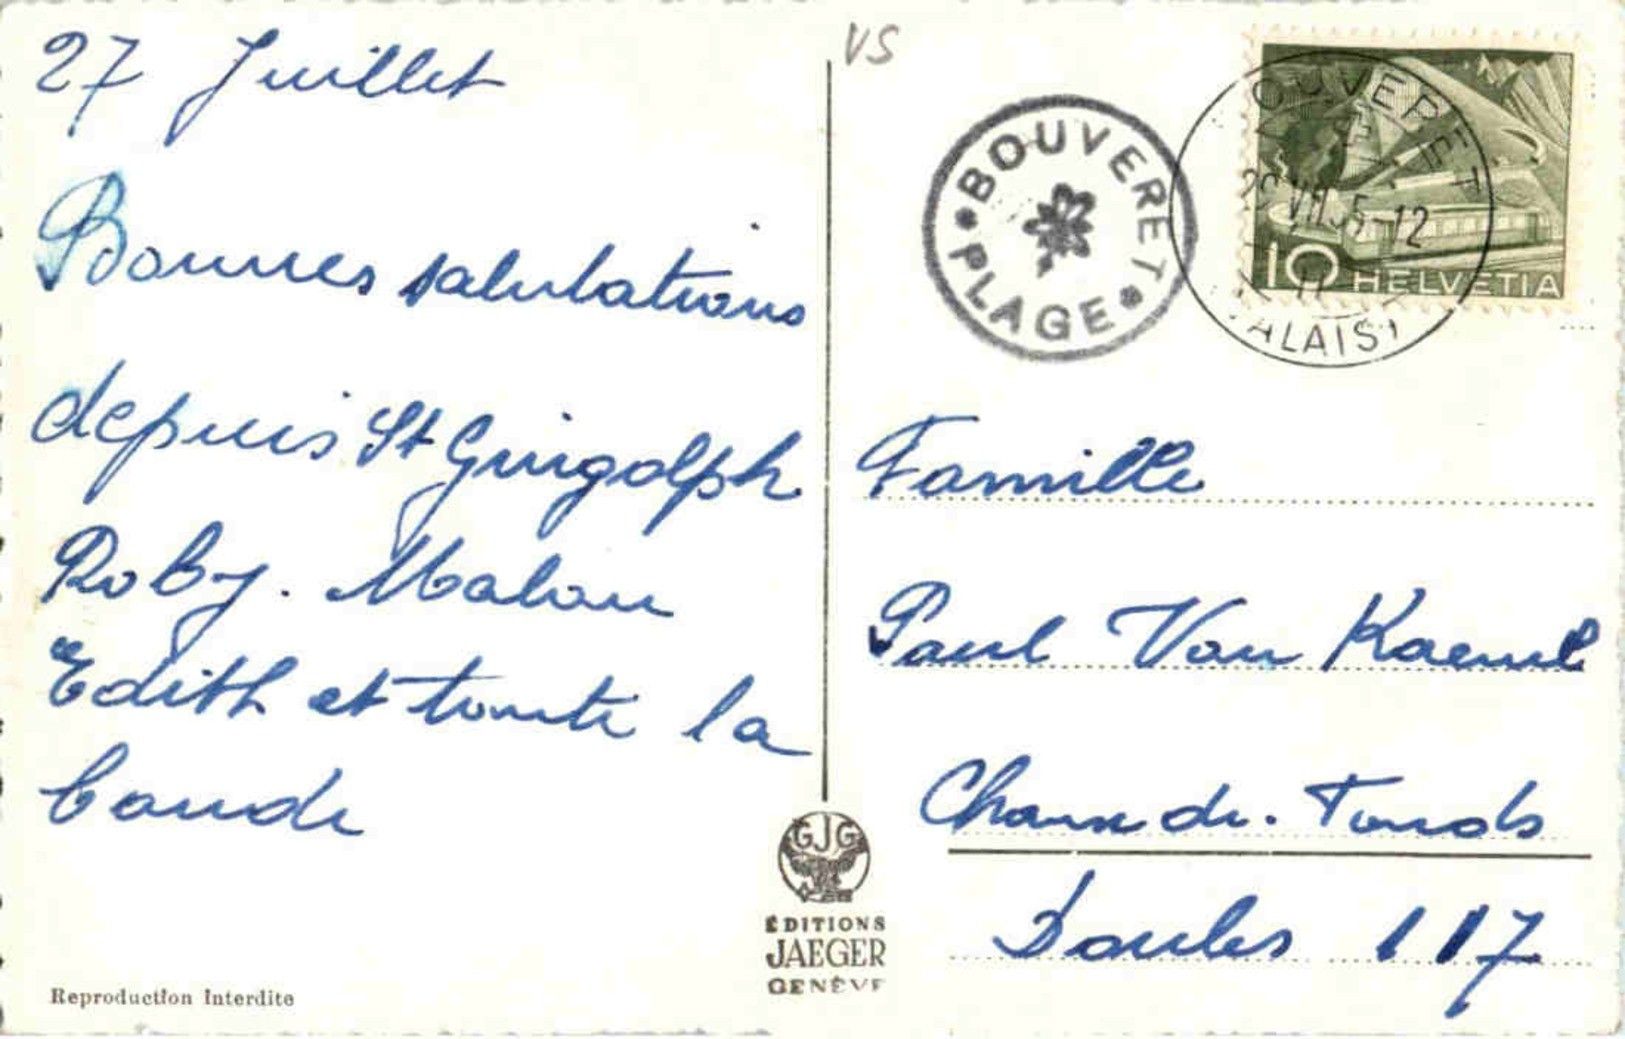 27 Juillet
Bonnes salutations
depuis St Gingolph
Roby. Malou
Edith et toute la
bande
VS
BOUVERET
PLAGE
BOUVERET
VII.5 -12
VALAIS
10 HELVETIA
Famille
Paul Von Kaenel
Chaux-de-Fonds
Doubs 117
GJG
ÉDITIONS
JAEGER
GENÈVE
Reproduction Interdite